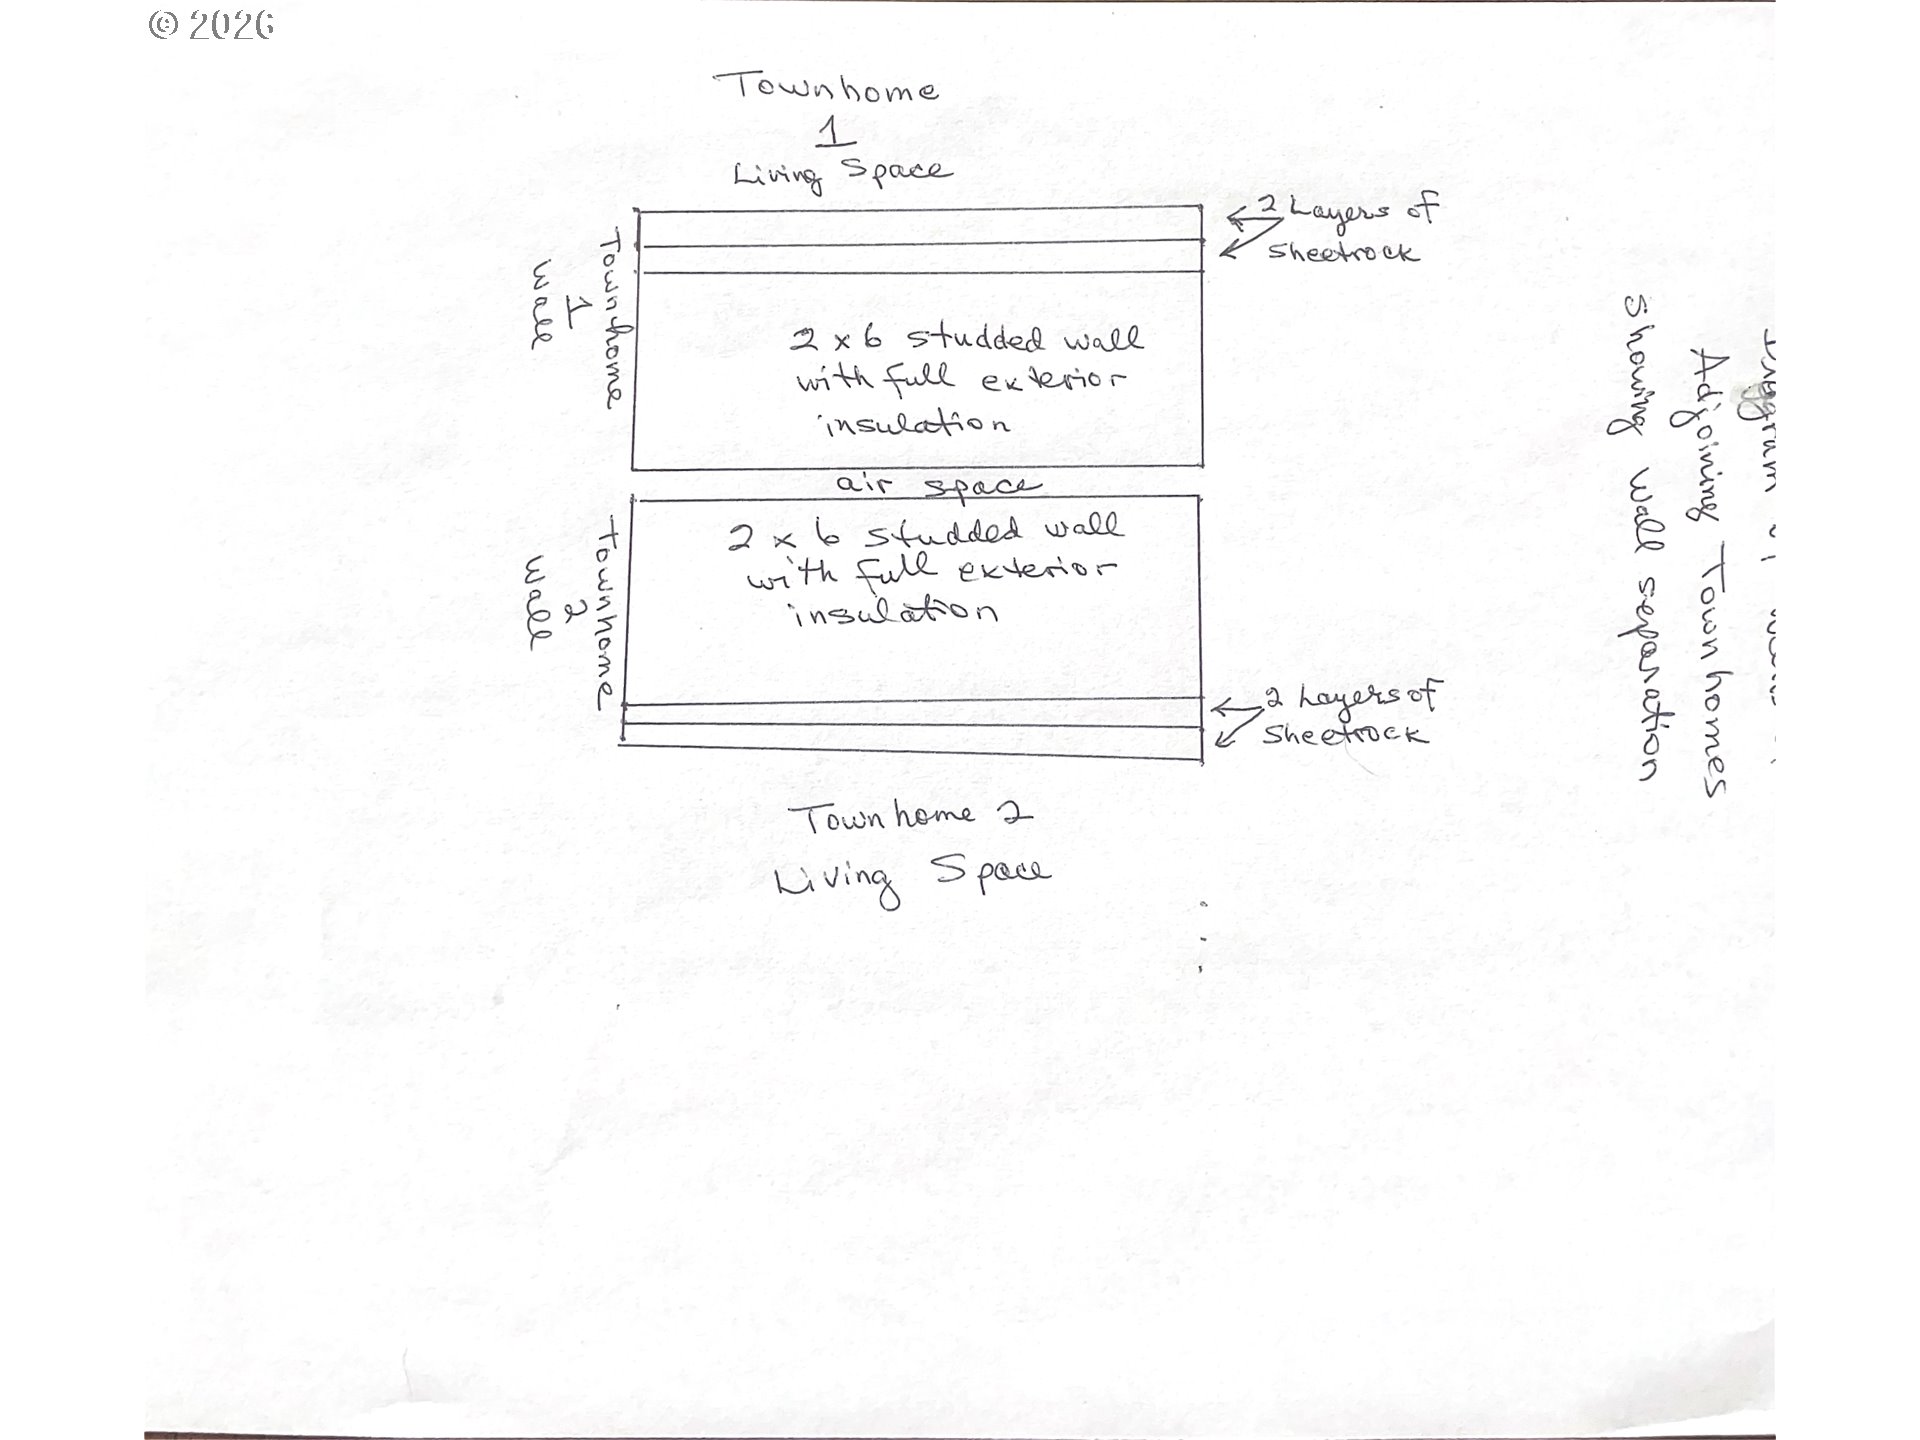 © 2026
Townhome
1
Living Space
2 Layers of
Sheetrock
Townhome
1
Wall
2 x 6 studded wall
with full exterior
insulation
air space
Townhome
2
Wall
2 x 6 studded wall
with full exterior
insulation
2 Layers of
Sheetrock
Townhome 2
Living Space
Diagram
Adjoining Townhomes
showing wall separation